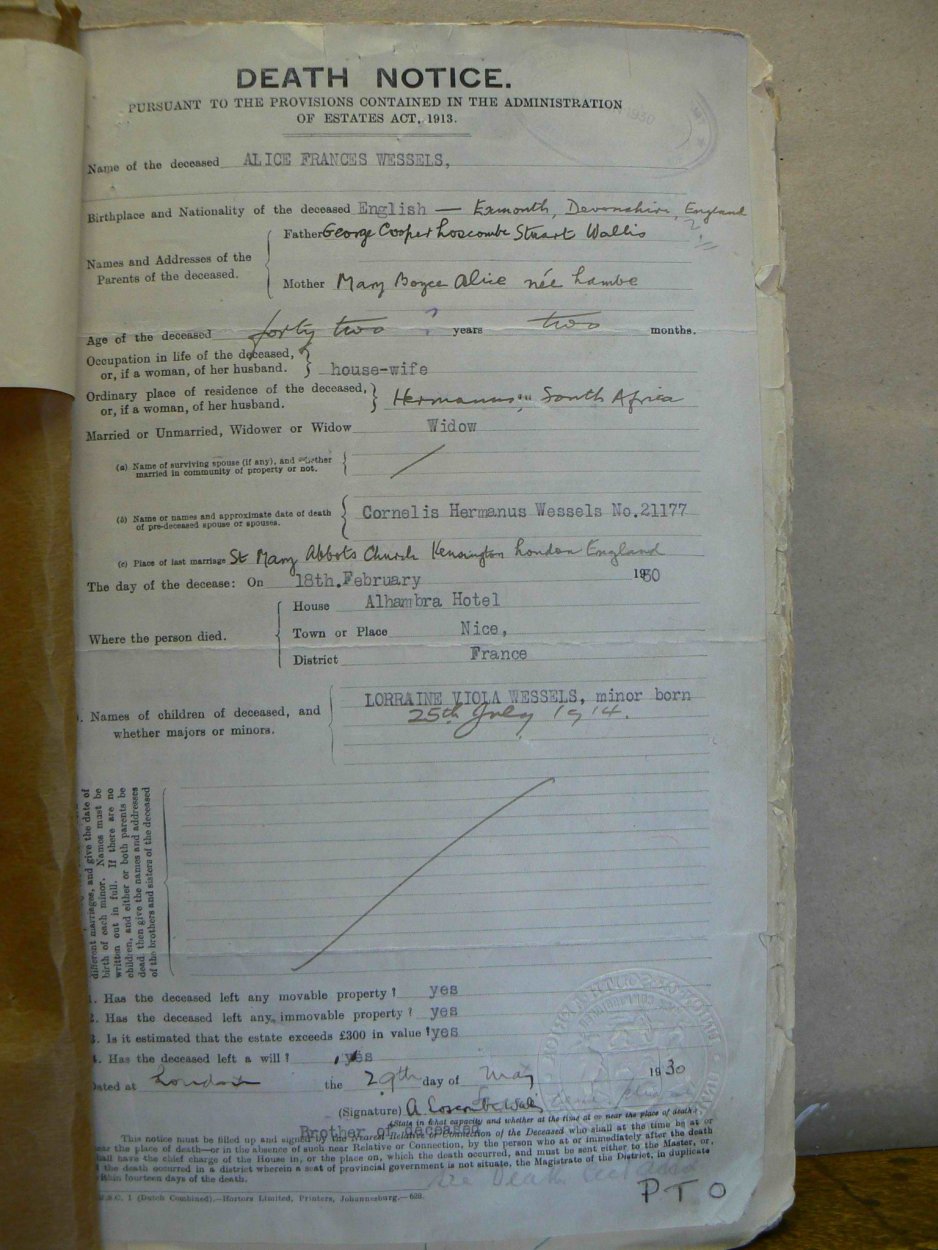 DEATH NOTICE.
PURSUANT TO THE PROVISIONS CONTAINED IN THE ADMINISTRATION
OF ESTATES ACT, 1913.
1930
Name of the deceased ALICE FRANCES WESSELS,
Birthplace and Nationality of the deceased English — Exmouth, Devonshire, England
Names and Addresses of the
Parents of the deceased.
Father George Cooper Loscombe Stuart Wallis
Mother Mary Boyce Alice née Lambe
Age of the deceased forty two ? years two months.
Occupation in life of the deceased,
or, if a woman, of her husband. house-wife
Ordinary place of residence of the deceased,
or, if a woman, of her husband. Hermanus, South Africa
Married or Unmarried, Widower or Widow Widow
(a) Name of surviving spouse (if any), and whether
married in community of property or not.
(b) Name or names and approximate date of death
of pre-deceased spouse or spouses. Cornelis Hermanus Wessels No.21177
(c) Place of last marriage St Mary Abbots Church Kensington London England
The day of the decease: On 18th.February 1930
Where the person died.
House Alhambra Hotel
Town or Place Nice,
District France
Names of children of deceased, and
whether majors or minors.
LORRAINE VIOLA WESSELS, minor born
25th July 1914.
different marriages, and give the date of
birth of each minor. Names must be
written out in full. If there are no
children, and either or both parents be
dead, then give the names and addresses
of the brothers and sisters of the deceased
1. Has the deceased left any movable property? yes
2. Has the deceased left any immovable property? yes
3. Is it estimated that the estate exceeds £300 in value? yes
4. Has the deceased left a will? yes
Dated at London the 29th day of May 1930
(Signature) A Loscombe Wallis
(State in what capacity and whether at the time at or near the place of death)
Brother of deceased
This notice must be filled up and signed by the Nearest Relative or Connection of the Deceased who shall at the time be at or
near the place of death—or in the absence of such near Relative or Connection, by the person who at or immediately after the death
shall have the chief charge of the House in, or the place on, which the death occurred, and must be sent either to the Master, or,
if the death occurred in a district wherein a seat of provincial government is not situate, the Magistrate of the District, in duplicate
within fourteen days of the death.
see Death
1 (Dutch Combined).—Hortors Limited, Printers, Johannesburg.—628.
P T O